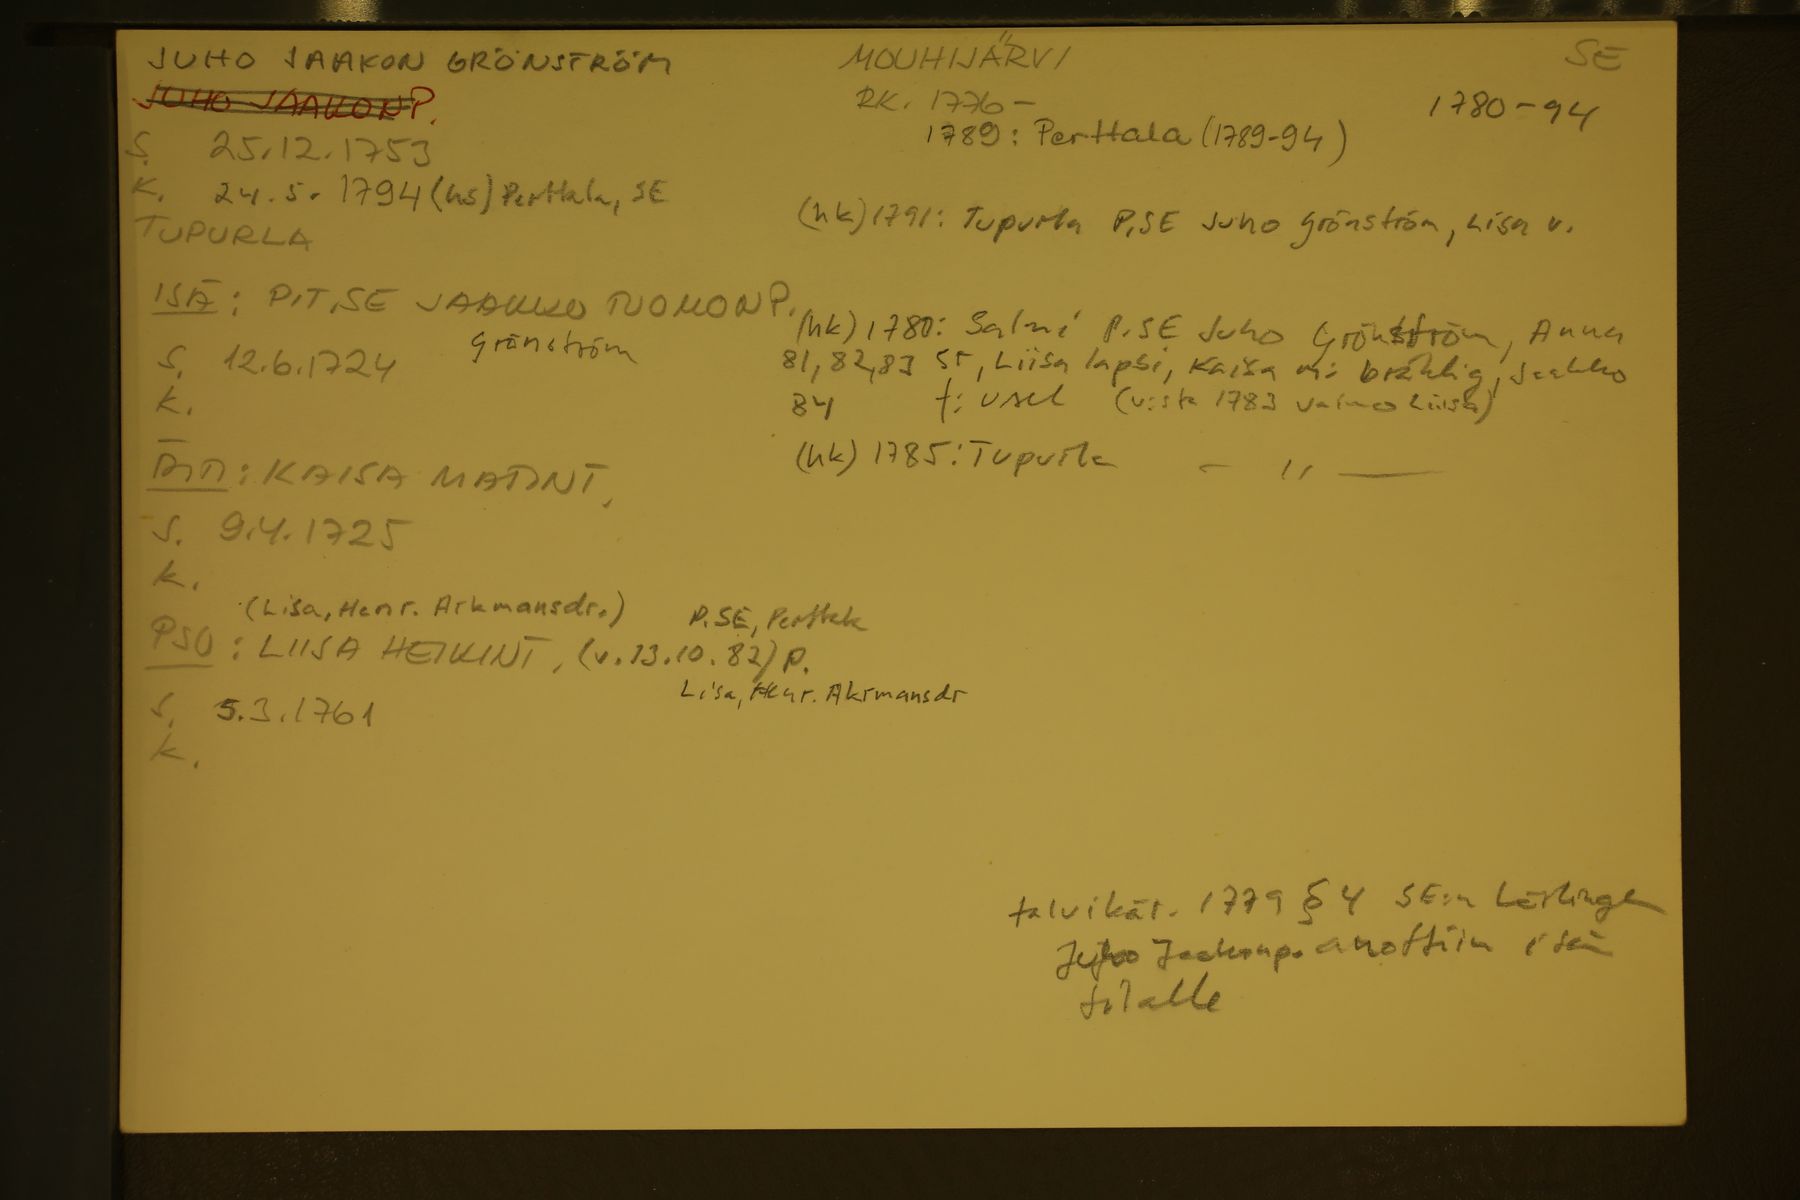 JUHO JAAKON GRÖNSTRÖM
JUHO JAAKONP.
S. 25.12.1753
K. 24.5.1794 (hs) Perttala, SE
TUPURLA
ISÄ: PIT.SE JAAKKO TUOMONP.
Grönström
S. 12.6.1724
K.
ÄITI: KAISA MATINT.
S. 9.4.1725
K.
(Lisa, Henr. Arkmansdr.) P.SE, Perttala
PSO: LIISA HEIKINT, (v. 13.10.82) P.
Lisa, Henr. Akrmansdr
S. 5.3.1761
K.
MOUHIJÄRVI SE
RK. 1776- 1780-94
1789: Perttala (1789-94)
(hk) 1791: Tupurla P.SE Juho Grönström, Lisa v.
(hk) 1780: Salmi P.SE Juho Grönström, Anna
81, 82, 83 sr, Liisa lapsi, Kaisa m: bräklig, Jaakko
84 f: usel (v:sta 1783 vaimo Liisa)
(hk) 1785: Tupurla - " -
talvikär. 1779 § 4 SE:n Lärlinge
Juho Jaakonp. anottiin isän
tilalle